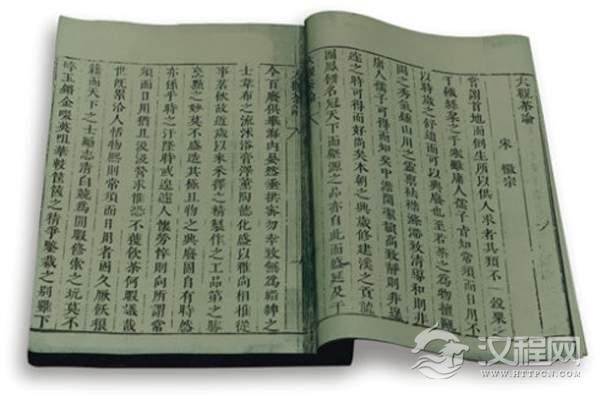 大觀茶論
宋 徽宗
嘗謂首地而倒生所以供人求者其類不一穀粟之
於饑絲枲之於寒雖庸人孺子皆知常須而日用不
以時歲之舒迫而可以興廢也至若茶之為物擅甌
閩之秀氣鍾山川之靈禀祛襟滌滯致清導和則非
庸人孺子可得而知矣冲澹閒潔韻高致静則非遑
遽之時可得而好尚矣本朝之興歲修建溪之貢龍
團鳳餅名冠天下而壑源之品亦自此而盛延及于
大觀茶論
今百廢俱舉海内晏然垂拱密勿幸致無為縉紳之
士韋布之流沐浴膏澤薰陶德化盛以雅尚相推從
事茗飲故近歲以來采擇之精製作之工品第之勝
烹點之妙莫不盛造其極且物之興廢固自有時然
亦係乎時之汙隆時或遑遽人懷勞悴則向所謂常
須而日用猶且汲汲營求惟恐不獲飲茶何暇議哉
世既累洽人恬物熙則常須而日用者固久厭飫狼
籍而天下之士勵志清白競為閒暇修索之玩莫不
碎玉鏘金啜英咀華較筐篋之精爭鑒裁之别雖下
汉程网
WWW.HTTPCN.COM